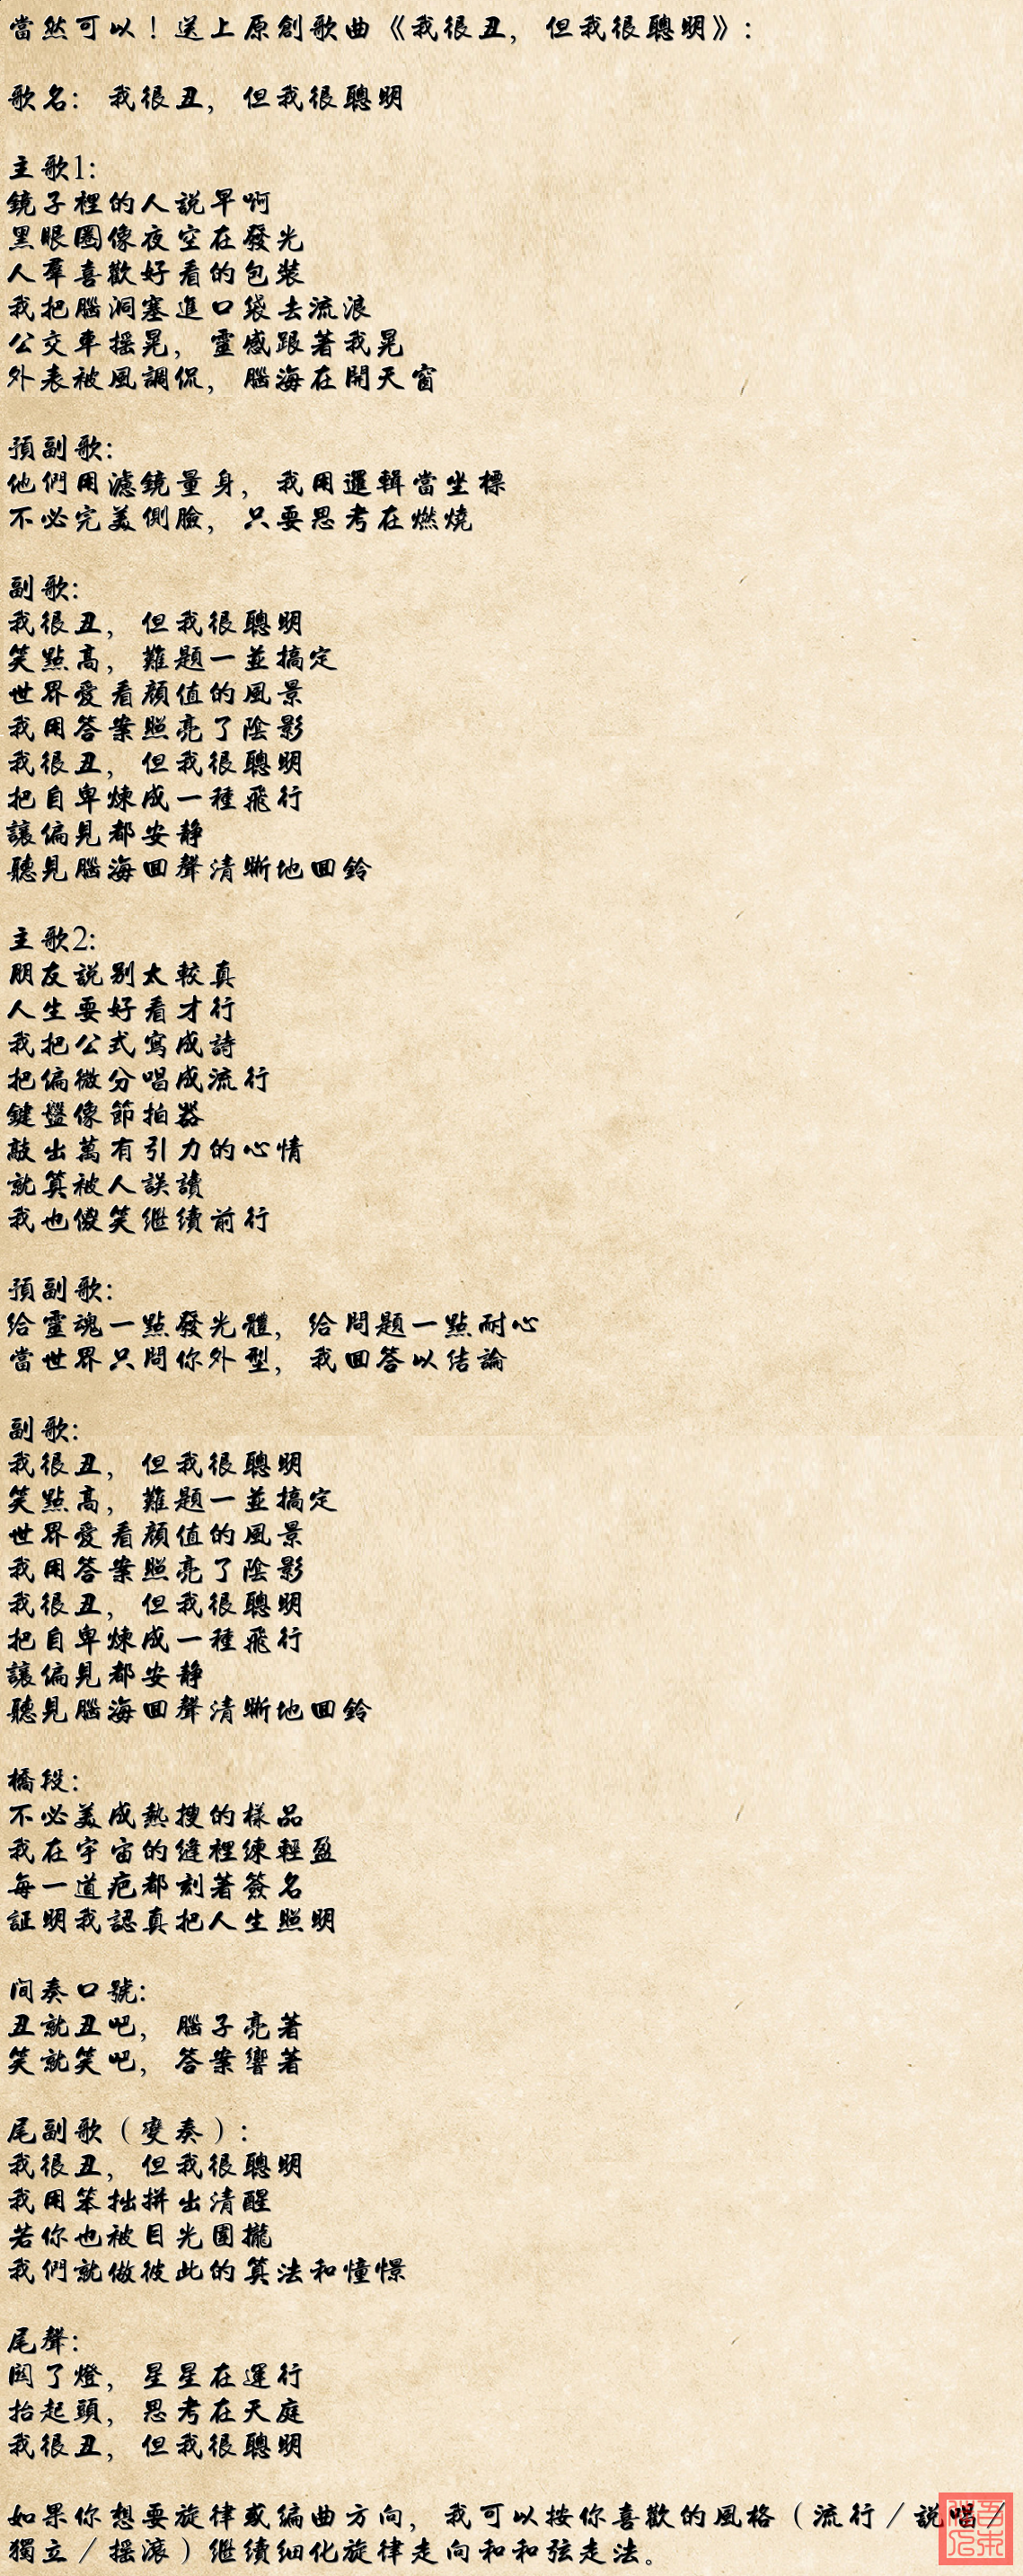 當然可以！送上原創歌曲《我很丑，但我很聰明》：
歌名：我很丑，但我很聰明
主歌1：
鏡子裡的人說早啊
黑眼圈像夜空在發光
人羣喜歡好看的包裝
我把腦洞塞進口袋去流浪
公交車搖晃，靈感跟著我晃
外表被風調侃，腦海在開天窗
預副歌：
他們用濾鏡量身，我用邏輯當坐標
不必完美側臉，只要思考在燃燒
副歌：
我很丑，但我很聰明
笑點高，難題一並搞定
世界愛看顏值的風景
我用答案照亮了陰影
我很丑，但我很聰明
把自卑煉成一種飛行
讓偏見都安靜
聽見腦海回聲清晰地回鈴
主歌2：
朋友說別太較真
人生要好看才行
我把公式寫成詩
把偏微分唱成流行
鍵盤像節拍器
敲出萬有引力的心情
就算被人誤讀
我也傻笑继續前行
預副歌：
给靈魂一點發光體，给問題一點耐心
當世界只問你外型，我回答以结論
副歌：
我很丑，但我很聰明
笑點高，難題一並搞定
世界愛看顏值的風景
我用答案照亮了陰影
我很丑，但我很聰明
把自卑煉成一種飛行
讓偏見都安靜
聽見腦海回聲清晰地回鈴
橋段：
不必美成熱搜的樣品
我在宇宙的縫裡練輕盈
每一道疤都刻著簽名
証明我認真把人生照明
间奏口號：
丑就丑吧，腦子亮著
笑就笑吧，答案響著
尾副歌（變奏）：
我很丑，但我很聰明
我用笨拙拼出清醒
若你也被目光圍攏
我們就做彼此的算法和憧憬
尾聲：
関了燈，星星在運行
抬起頭，思考在天庭
我很丑，但我很聰明
如果你想要旋律或編曲方向，我可以按你喜歡的風格（流行／說唱／
獨立／搖滾）继續细化旋律走向和和弦走法。